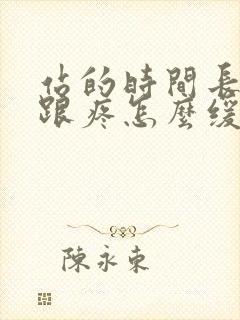 佔的時間長
跟疼怎麼緩
陳永東